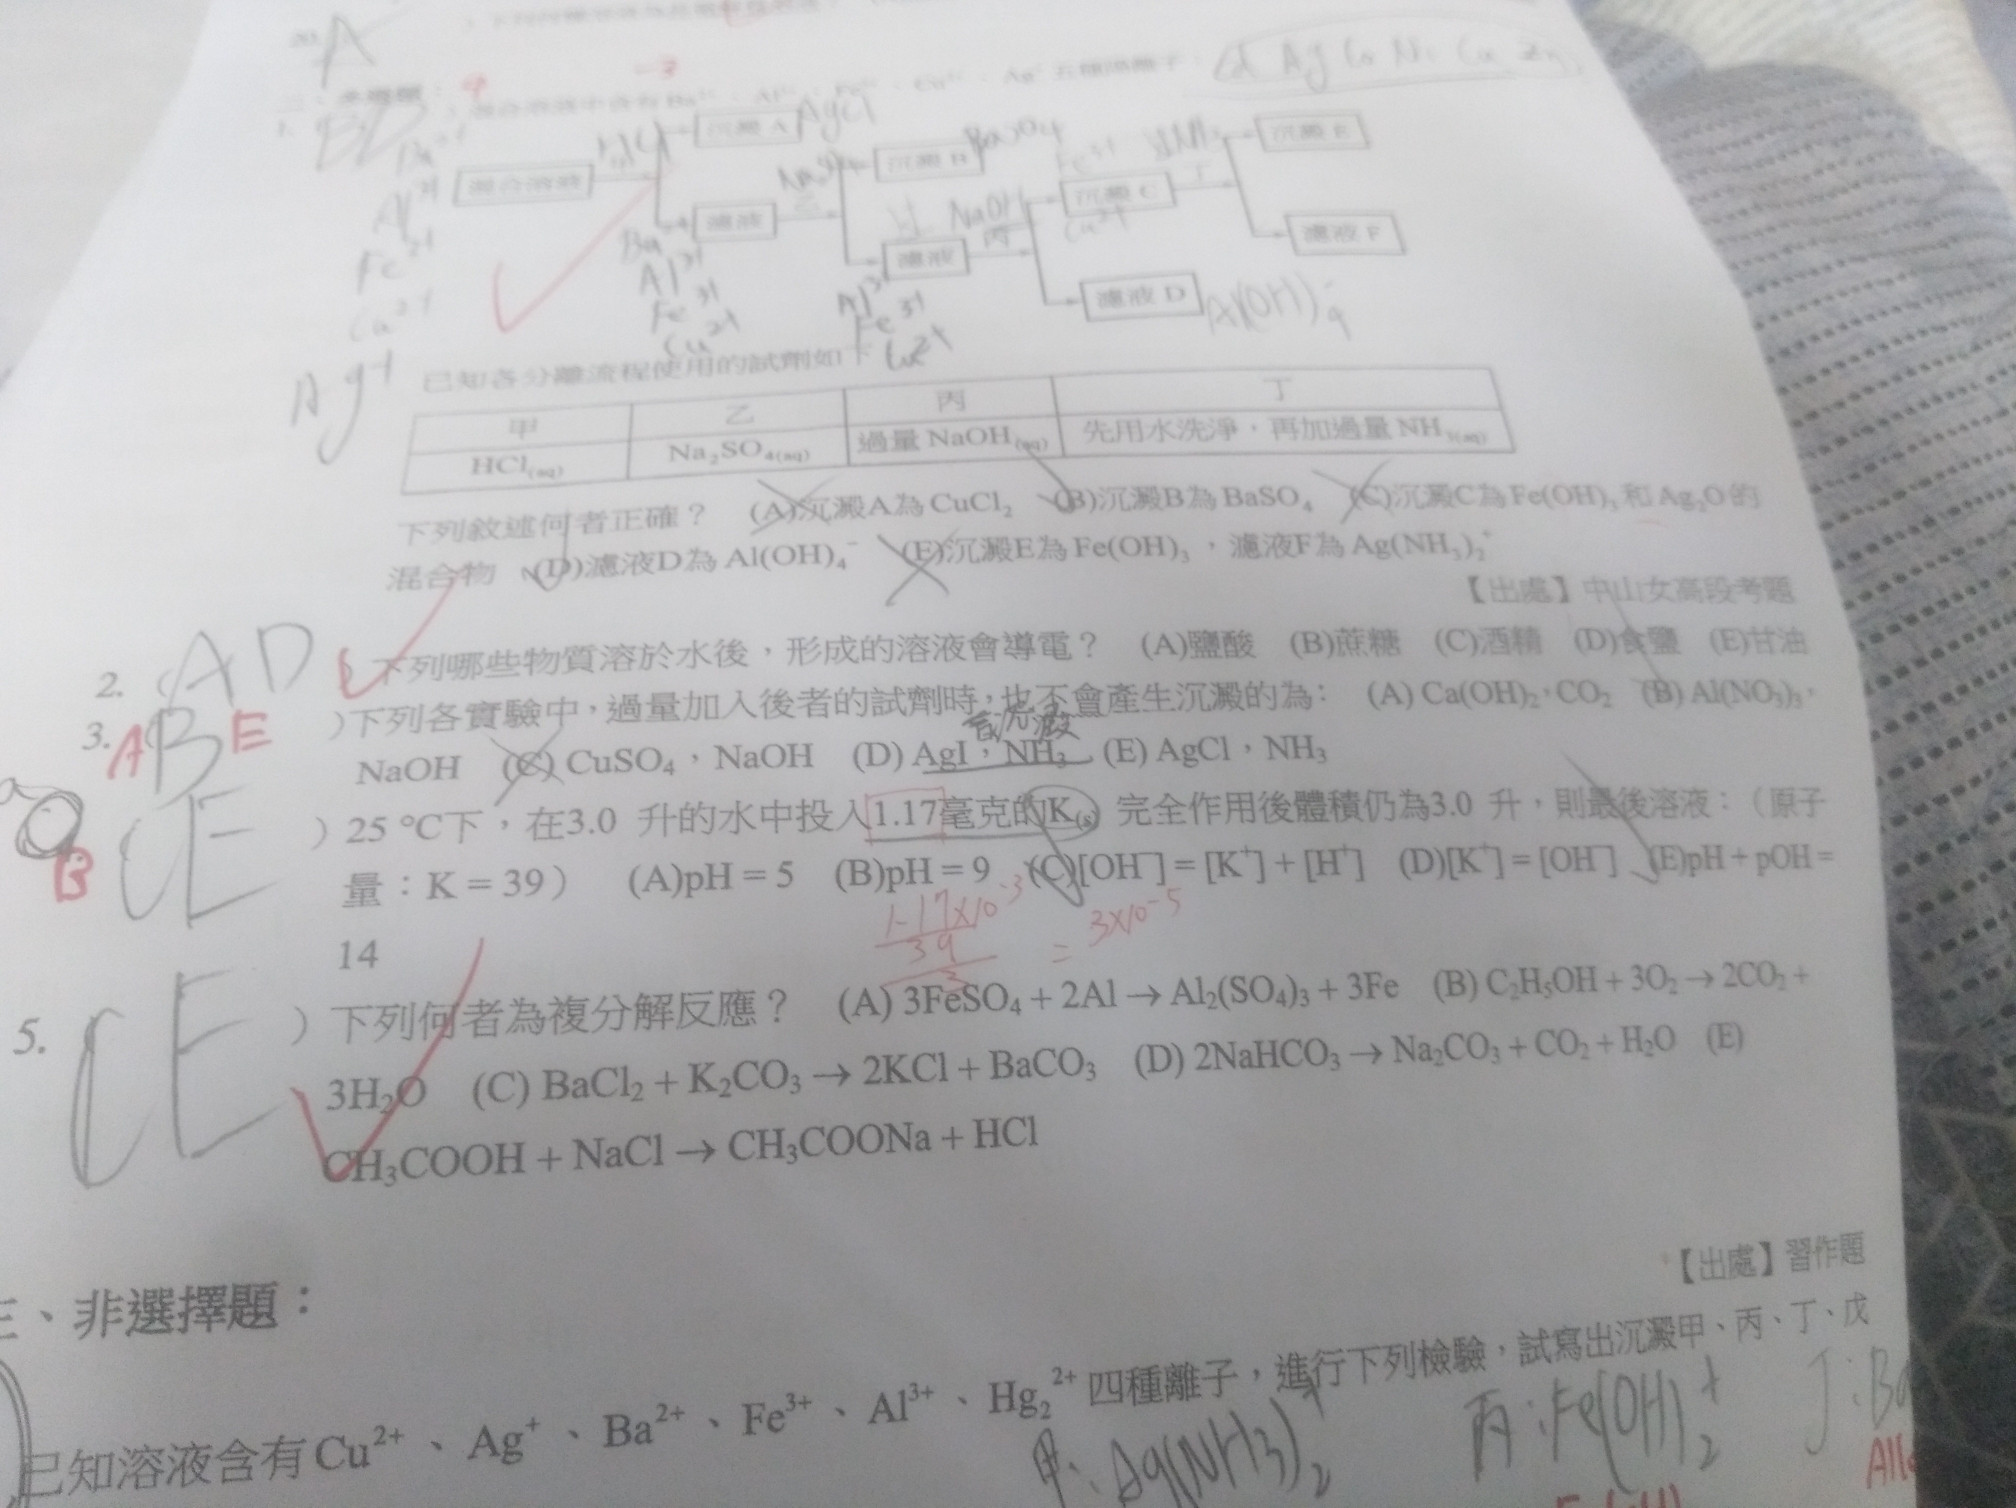 20. A
Cd Ag Co Ni Cu Zn
二、多選題：
-3
1. BD 混合溶液中含有Ba²⁺、Al³⁺、Fe³⁺、Cu²⁺、Ag⁺五種陽離子
Ba²⁺ Al³⁺ Fe³⁺ Cu²⁺ Ag⁺
混合溶液 HCl 甲
沉澱 A AgCl
濾液
Ba Al³⁺ Fe³⁺ Cu²⁺
乙
沉澱 B BaSO4
濾液
Al³⁺ Fe³⁺ Cu²⁺
NaOH 丙
沉澱 C Fe³⁺ Cu²⁺
濾液 D Al(OH)4⁻
NH3 丁
沉澱 E
濾液 F
已知各分離流程使用的試劑如下
甲 乙 丙 丁
HCl(aq) Na₂SO₄(aq) 過量 NaOH(aq) 先用水洗淨，再加過量 NH₃(aq)
下列敘述何者正確？ (A)沉澱A為 CuCl₂ (B)沉澱B為 BaSO₄ (C)沉澱C為 Fe(OH)₃和 Ag₂O的
混合物 (D)濾液D為 Al(OH)₄⁻ (E)沉澱E為 Fe(OH)₃，濾液F為 Ag(NH₃)₂⁺
【出處】中山女高段考題
2. AD 下列哪些物質溶於水後，形成的溶液會導電？ (A)鹽酸 (B)蔗糖 (C)酒精 (D)食鹽 (E)甘油
3. ABE )下列各實驗中，過量加入後者的試劑時，也不會產生沉澱的為： (A) Ca(OH)₂，CO₂ (B) Al(NO₃)₃，
有沉澱
NaOH (C) CuSO₄，NaOH (D) AgI，NH₃ (E) AgCl，NH₃
B CE )25 °C下，在3.0 升的水中投入1.17毫克的K(s) 完全作用後體積仍為3.0 升，則最後溶液：（原子
量：K = 39） (A)pH = 5 (B)pH = 9 (C)[OH⁻] = [K⁺] + [H⁺] (D)[K⁺] = [OH⁻] (E)pH + pOH =
1.17×10⁻³
39
3
= 3×10⁻⁵
14
5. CE )下列何者為複分解反應？ (A) 3FeSO₄ + 2Al → Al₂(SO₄)₃ + 3Fe (B) C₂H₅OH + 3O₂ → 2CO₂ +
3H₂O (C) BaCl₂ + K₂CO₃ → 2KCl + BaCO₃ (D) 2NaHCO₃ → Na₂CO₃ + CO₂ + H₂O (E)
CH₃COOH + NaCl → CH₃COONa + HCl
【出處】習作題
三、非選擇題：
已知溶液含有 Cu²⁺、Ag⁺、Ba²⁺、Fe³⁺、Al³⁺、Hg₂²⁺ 四種離子，進行下列檢驗，試寫出沉澱甲、丙、丁、戊
甲: Ag(NH3)₂⁺ 丙: Fe(OH)₂⁺ 丁: Ba